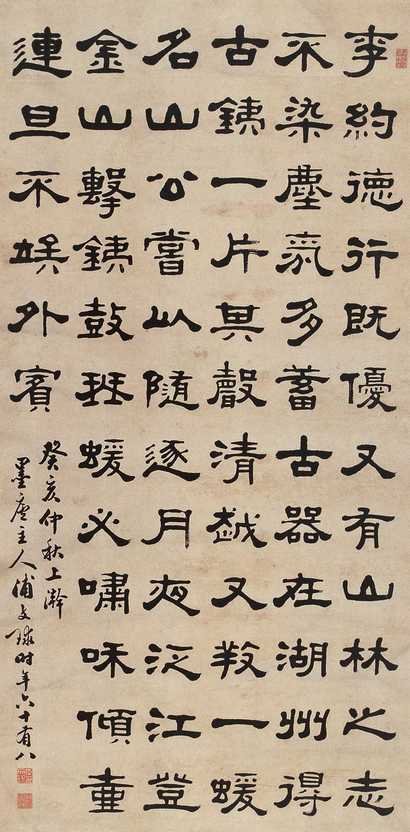 李約德行既優又有山林之志
不染塵氣多蓄古器在湖州得
古銕一片其聲清越又𢼝一蝯
名山公嘗以隨逐月夜泛江登
金山擊銕鼓珡蝯必嘯咊傾壺
達旦不竢外賓
癸亥仲秋上澣
墨廬主人浦文球時年六十有八